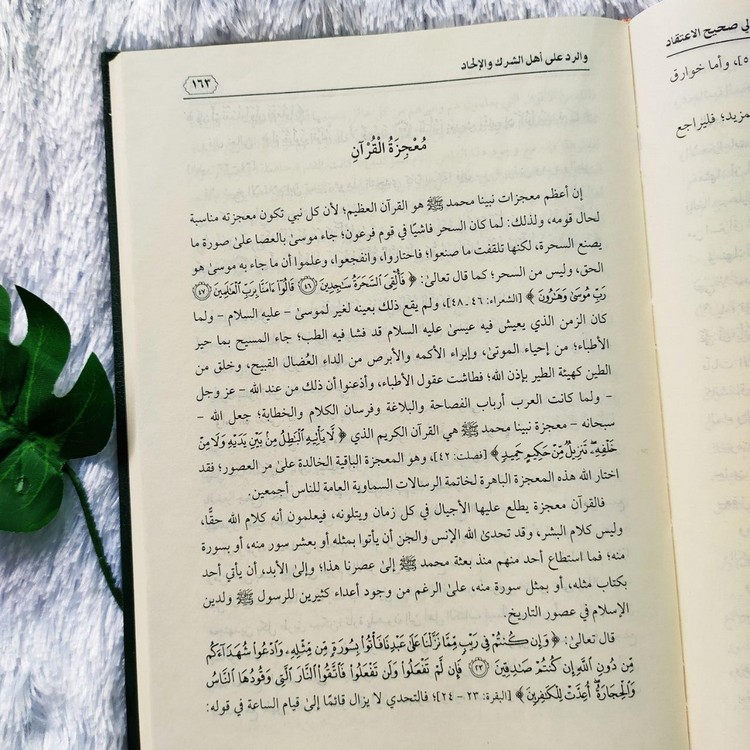 والرد على أهل الشرك والإلحاد
١٦٣
مُعْجِزَةُ الْقُرْآنِ
إن أعظم معجزات نبينا محمد ﷺ هو القرآن العظيم؛ لأن كل نبي تكون معجزته مناسبة
لحال قومه، ولذلك: لما كان السحر فاشيًا في قوم فرعون؛ جاء موسىٰ بالعصا علىٰ صورة ما
يصنع السحرة، لكنها تلقفت ما صنعوا؛ فاحتاروا، وانفجعوا، وعلموا أن ما جاء به موسىٰ هو
الحق، وليس من السحر؛ كما قال تعالىٰ: ﴿ فَأُلْقِيَ السَّحَرَةُ سَاجِدِينَ ﴿٤٦﴾ قَالُوٓا۟ ءَامَنَّا بِرَبِّ الْعَالَمِينَ ﴿٤٧﴾
رَبِّ مُوسَىٰ وَهَارُونَ ﴾ [الشعراء: ٤٦ ـ ٤٨]، ولم يقع ذلك بعينه لغير لموسىٰ – عليه السلام – ولما
كان الزمن الذي يعيش فيه عيسىٰ عليه السلام قد فشا فيه الطب؛ جاء المسيح بما حير
الأطباء؛ من إحياء الموتىٰ، وإبراء الأكمه والأبرص من الداء العُضال القبيح، وخلق من
الطين كهيئة الطير بإذن الله؛ فطاشت عقول الأطباء، وأذعنوا أن ذلك من عند الله – عز وجل
– ولما كانت العرب أرباب الفصاحة والبلاغة وفرسان الكلام والخطابة؛ جعل الله –
سبحانه – معجزة نبينا محمد ﷺ هي القرآن الكريم الذي ﴿ لَا يَأْتِيهِ الْبَاطِلُ مِنْ بَيْنِ يَدَيْهِ وَلَا مِنْ
خَلْفِهِ ۖ تَنزِيلٌ مِّنْ حَكِيمٍ حَمِيدٍ ﴾ [فصلت: ٤٢]، وهو المعجزة الباقية الخالدة علىٰ مر العصور؛ فقد
اختار الله هذه المعجزة الباهرة لخاتمة الرسالات السماوية العامة للناس أجمعين.
فالقرآن معجزة يطلع عليها الأجيال في كل زمان ويتلونه، فيعلمون أنه كلام الله حقًّا،
وليس كلام البشر، وقد تحدىٰ الله الإنس والجن أن يأتوا بمثله أو بعشر سور منه، أو بسورة
منه؛ فما استطاع أحد منهم منذ بعثة محمد ﷺ إلىٰ عصرنا هذا؛ وإلىٰ الأبد، أن يأتي أحد
بكتاب مثله، أو بمثل سورة منه، علىٰ الرغم من وجود أعداء كثيرين للرسول ﷺ ولدين
الإسلام في عصور التاريخ.
قال تعالىٰ: ﴿ وَإِن كُنتُمْ فِي رَيْبٍ مِّمَّا نَزَّلْنَا عَلَىٰ عَبْدِنَا فَأْتُوا۟ بِسُورَةٍ مِّن مِّثْلِهِ وَادْعُوا۟ شُهَدَآءَكُم
مِّن دُونِ اللَّهِ إِن كُنتُمْ صَادِقِينَ ﴿٢٣﴾ فَإِن لَّمْ تَفْعَلُوا۟ وَلَن تَفْعَلُوا۟ فَاتَّقُوا۟ النَّارَ الَّتِي وَقُودُهَا النَّاسُ
وَالْحِجَارَةُ ۖ أُعِدَّتْ لِلْكَافِرِينَ ﴾ [البقرة: ٢٣ – ٢٤]؛ فالتحدي لا يزال قائمًا إلىٰ قيام الساعة في قوله:
صحيح الاعتقاد
وأما خوارق
فليراجع